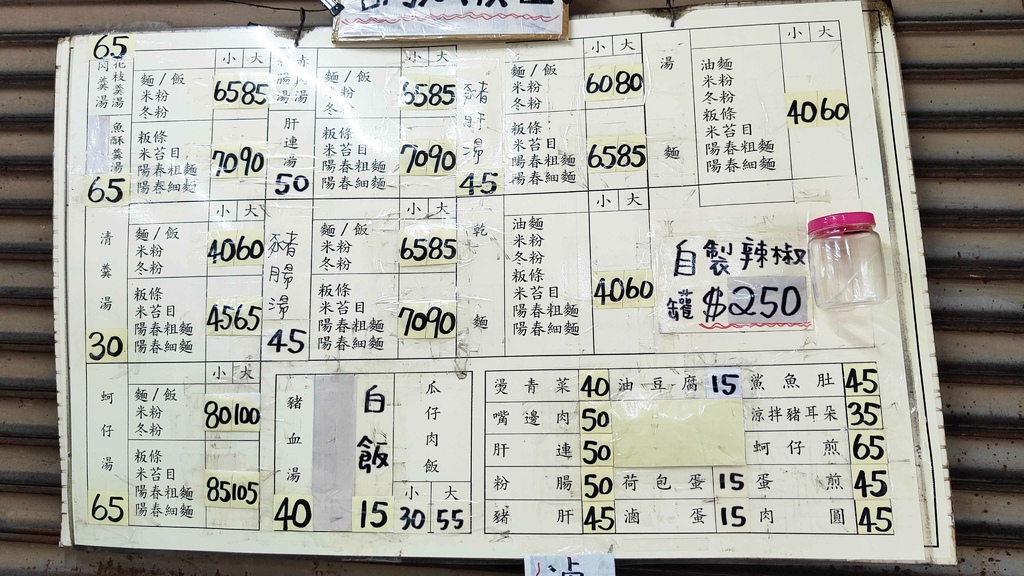 65
肉羹湯
花枝羹湯
魚酥羹湯
65
小 大
麵/飯
米粉
冬粉
65 85
粄條
米苔目
陽春粗麵
陽春細麵
70 90
肝連湯
50
小 大
麵/飯
米粉
冬粉
65 85
粄條
米苔目
陽春粗麵
陽春細麵
70 90
豬肝湯
45
小 大
麵/飯
米粉
冬粉
60 80
粄條
米苔目
陽春粗麵
陽春細麵
65 85
湯麵
小 大
油麵
米粉
冬粉
粄條
米苔目
陽春粗麵
陽春細麵
40 60
清羹湯
30
小 大
麵/飯
米粉
冬粉
40 60
粄條
米苔目
陽春粗麵
陽春細麵
45 65
豬腸湯
45
小 大
麵/飯
米粉
冬粉
65 85
粄條
米苔目
陽春粗麵
陽春細麵
70 90
乾麵
小 大
油麵
米粉
冬粉
粄條
米苔目
陽春粗麵
陽春細麵
40 60
自製辣椒
罐 $250
蚵仔湯
65
小 大
麵/飯
米粉
冬粉
80 100
粄條
米苔目
陽春粗麵
陽春細麵
85 105
豬血湯
40
白飯
15
瓜仔肉飯
小 大
30 55
燙青菜 40 油豆腐 15 鯊魚肚 45
嘴邊肉 50 涼拌豬耳朵 35
肝連 50 蚵仔煎 65
粉腸 50 荷包蛋 15 蛋煎 45
豬肝 45 滷蛋 15 肉圓 45